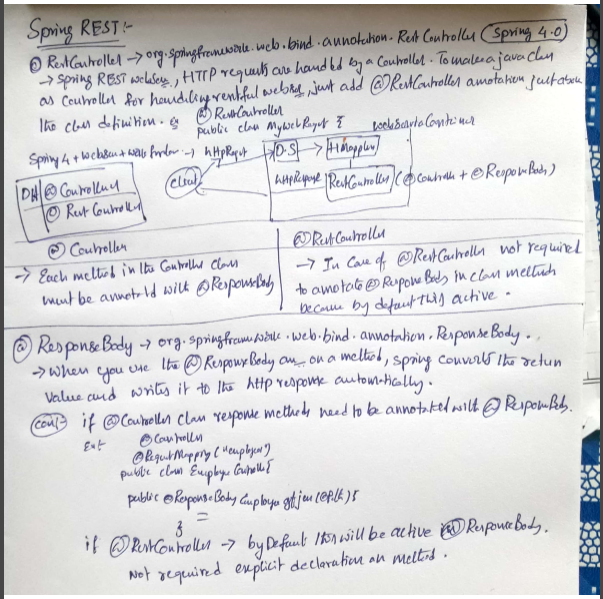 Spring REST:-
@ RestController → org.springframework.web.bind.annotation.RestController (Spring 4.0)
→ Spring REST webser, HTTP requests are handled by a Controller. To make a java class
as Controller for handling restful webser, just add @RestController annotation just above
the class definition. eg @RestController
public class MyWebReqst {
webService Container
Spring 4 + webser + → httpReqst
D.S → H.Mapping
DH @ Controller
@ Rest Controller
client
httpResponse RestController (@Controller + @ResponseBody)
@ Controller
→ Each method in the Controller class
must be annotated with @ResponseBody
@ RestController
→ In case of @RestController not required
to annotate @ResponseBody in class methods
because by default this active.
@ ResponseBody → org.springframework.web.bind.annotation.ResponseBody.
→ when you use the @ResponseBody an on a method, spring converts the return
value and writes it to the http response automatically.
if @Controller class response methods need to be annotated with @ResponseBody.
Ex:- @Controller
@RequestMapping("employee")
public class EmployeeController {
public @ResponseBody Employee
}
if @RestController → by Default this will be active @ResponseBody.
Not required explicit declaration on method.